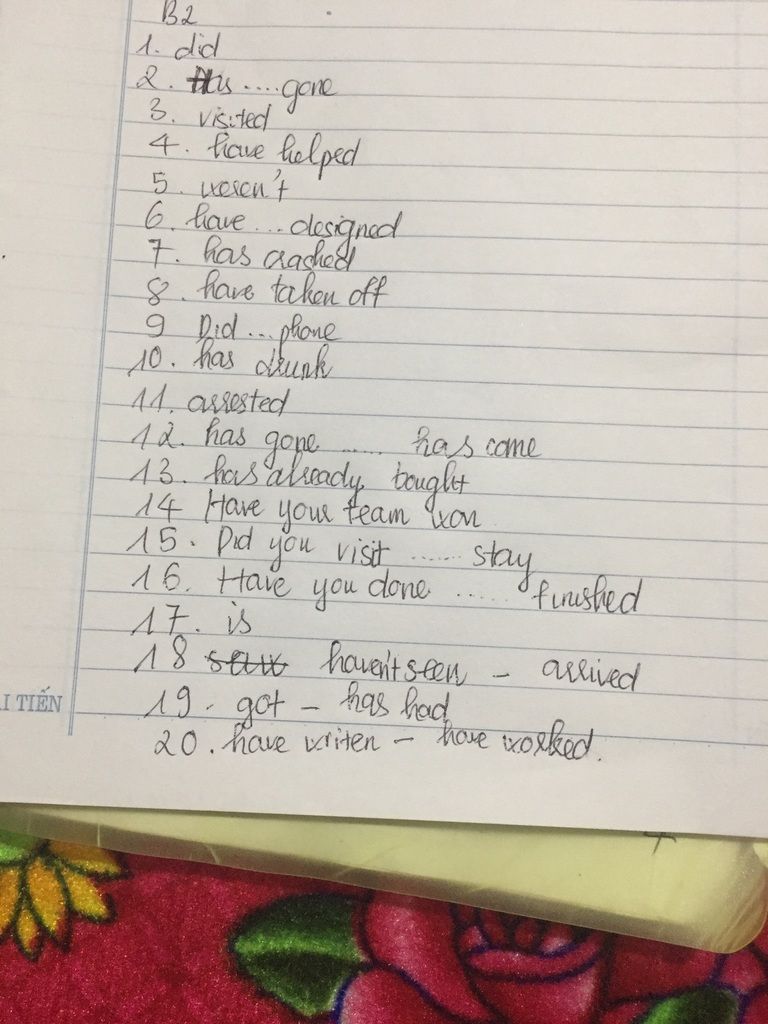 B2
1. did
2. Has .... gone
3. visited
4. have helped
5. weren't
6. have ... designed
7. has crashed
8. have taken off
9 Did ... phone
10. has drunk
11. arrested
12. has gone ...... has come
13. has already bought
14 Have your team won
15. Did you visit ...... stay
16. Have you done ...... finished
17. is
18 saw haven't seen - arrived
I TIẾN
19. got - has had
20. have writen - have worked.